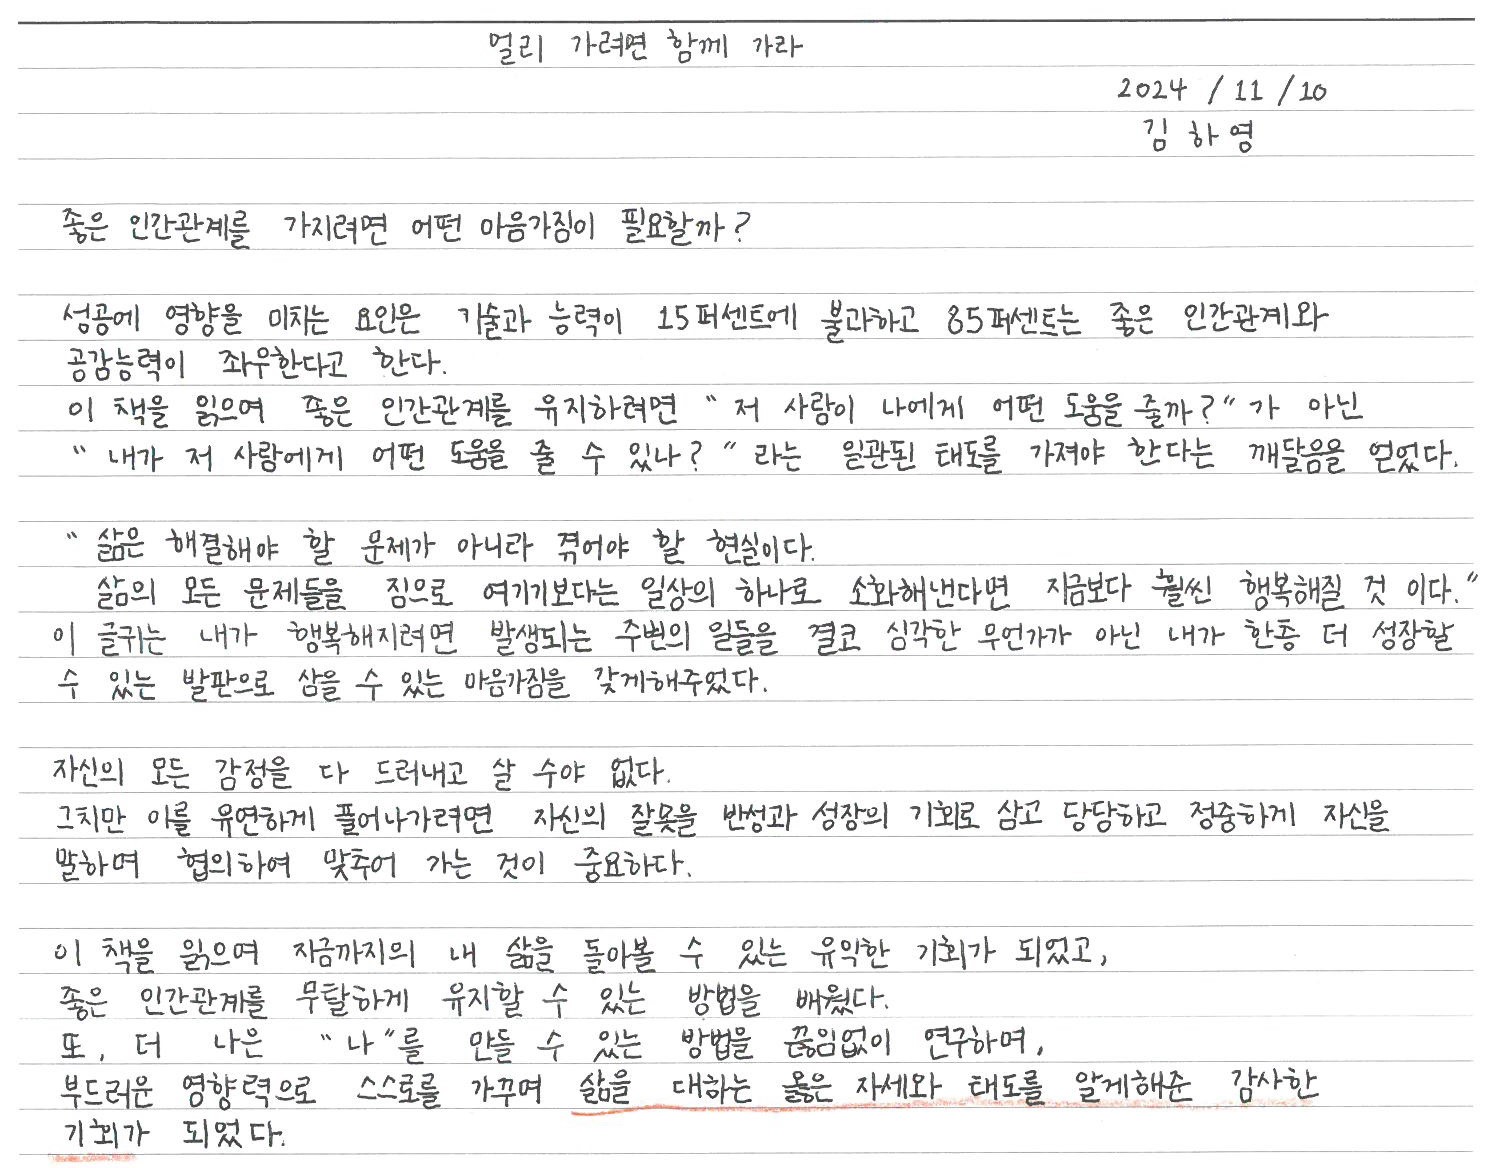 멀리 가려면 함께 가라
2024 / 11 / 10
김 하 영
좋은 인간관계를 가지려면 어떤 마음가짐이 필요할까?
성공에 영향을 미치는 요인은 기술과 능력이 15퍼센트에 불과하고 85퍼센트는 좋은 인간관계와
공감능력이 좌우한다고 한다.
이 책을 읽으며 좋은 인간관계를 유지하려면 “저 사람이 나에게 어떤 도움을 줄까?”가 아닌
“내가 저 사람에게 어떤 도움을 줄 수 있나?”라는 일관된 태도를 가져야 한다는 깨달음을 얻었다.
“삶은 해결해야 할 문제가 아니라 겪어야 할 현실이다.
삶의 모든 문제들을 짐으로 여기기보다는 일상의 하나로 소화해낸다면 지금보다 훨씬 행복해질 것 이다.”
이 글귀는 내가 행복해지려면 발생되는 주변의 일들을 결코 심각한 무언가가 아닌 내가 한층 더 성장할
수 있는 발판으로 삼을 수 있는 마음가짐을 갖게해주었다.
자신의 모든 감정을 다 드러내고 살 수야 없다.
그치만 이를 유연하게 풀어나가려면 자신의 잘못을 반성과 성장의 기회로 삼고 당당하고 정중하게 자신을
말하며 협의하여 맞추어 가는 것이 중요하다.
이 책을 읽으며 지금까지의 내 삶을 돌아볼 수 있는 유익한 기회가 되었고,
좋은 인간관계를 무탈하게 유지할 수 있는 방법을 배웠다.
또, 더 나은 “나”를 만들 수 있는 방법을 끊임없이 연구하며,
부드러운 영향력으로 스스로를 가꾸며 삶을 대하는 옳은 자세와 태도를 알게해준 감사한
기회가 되었다.